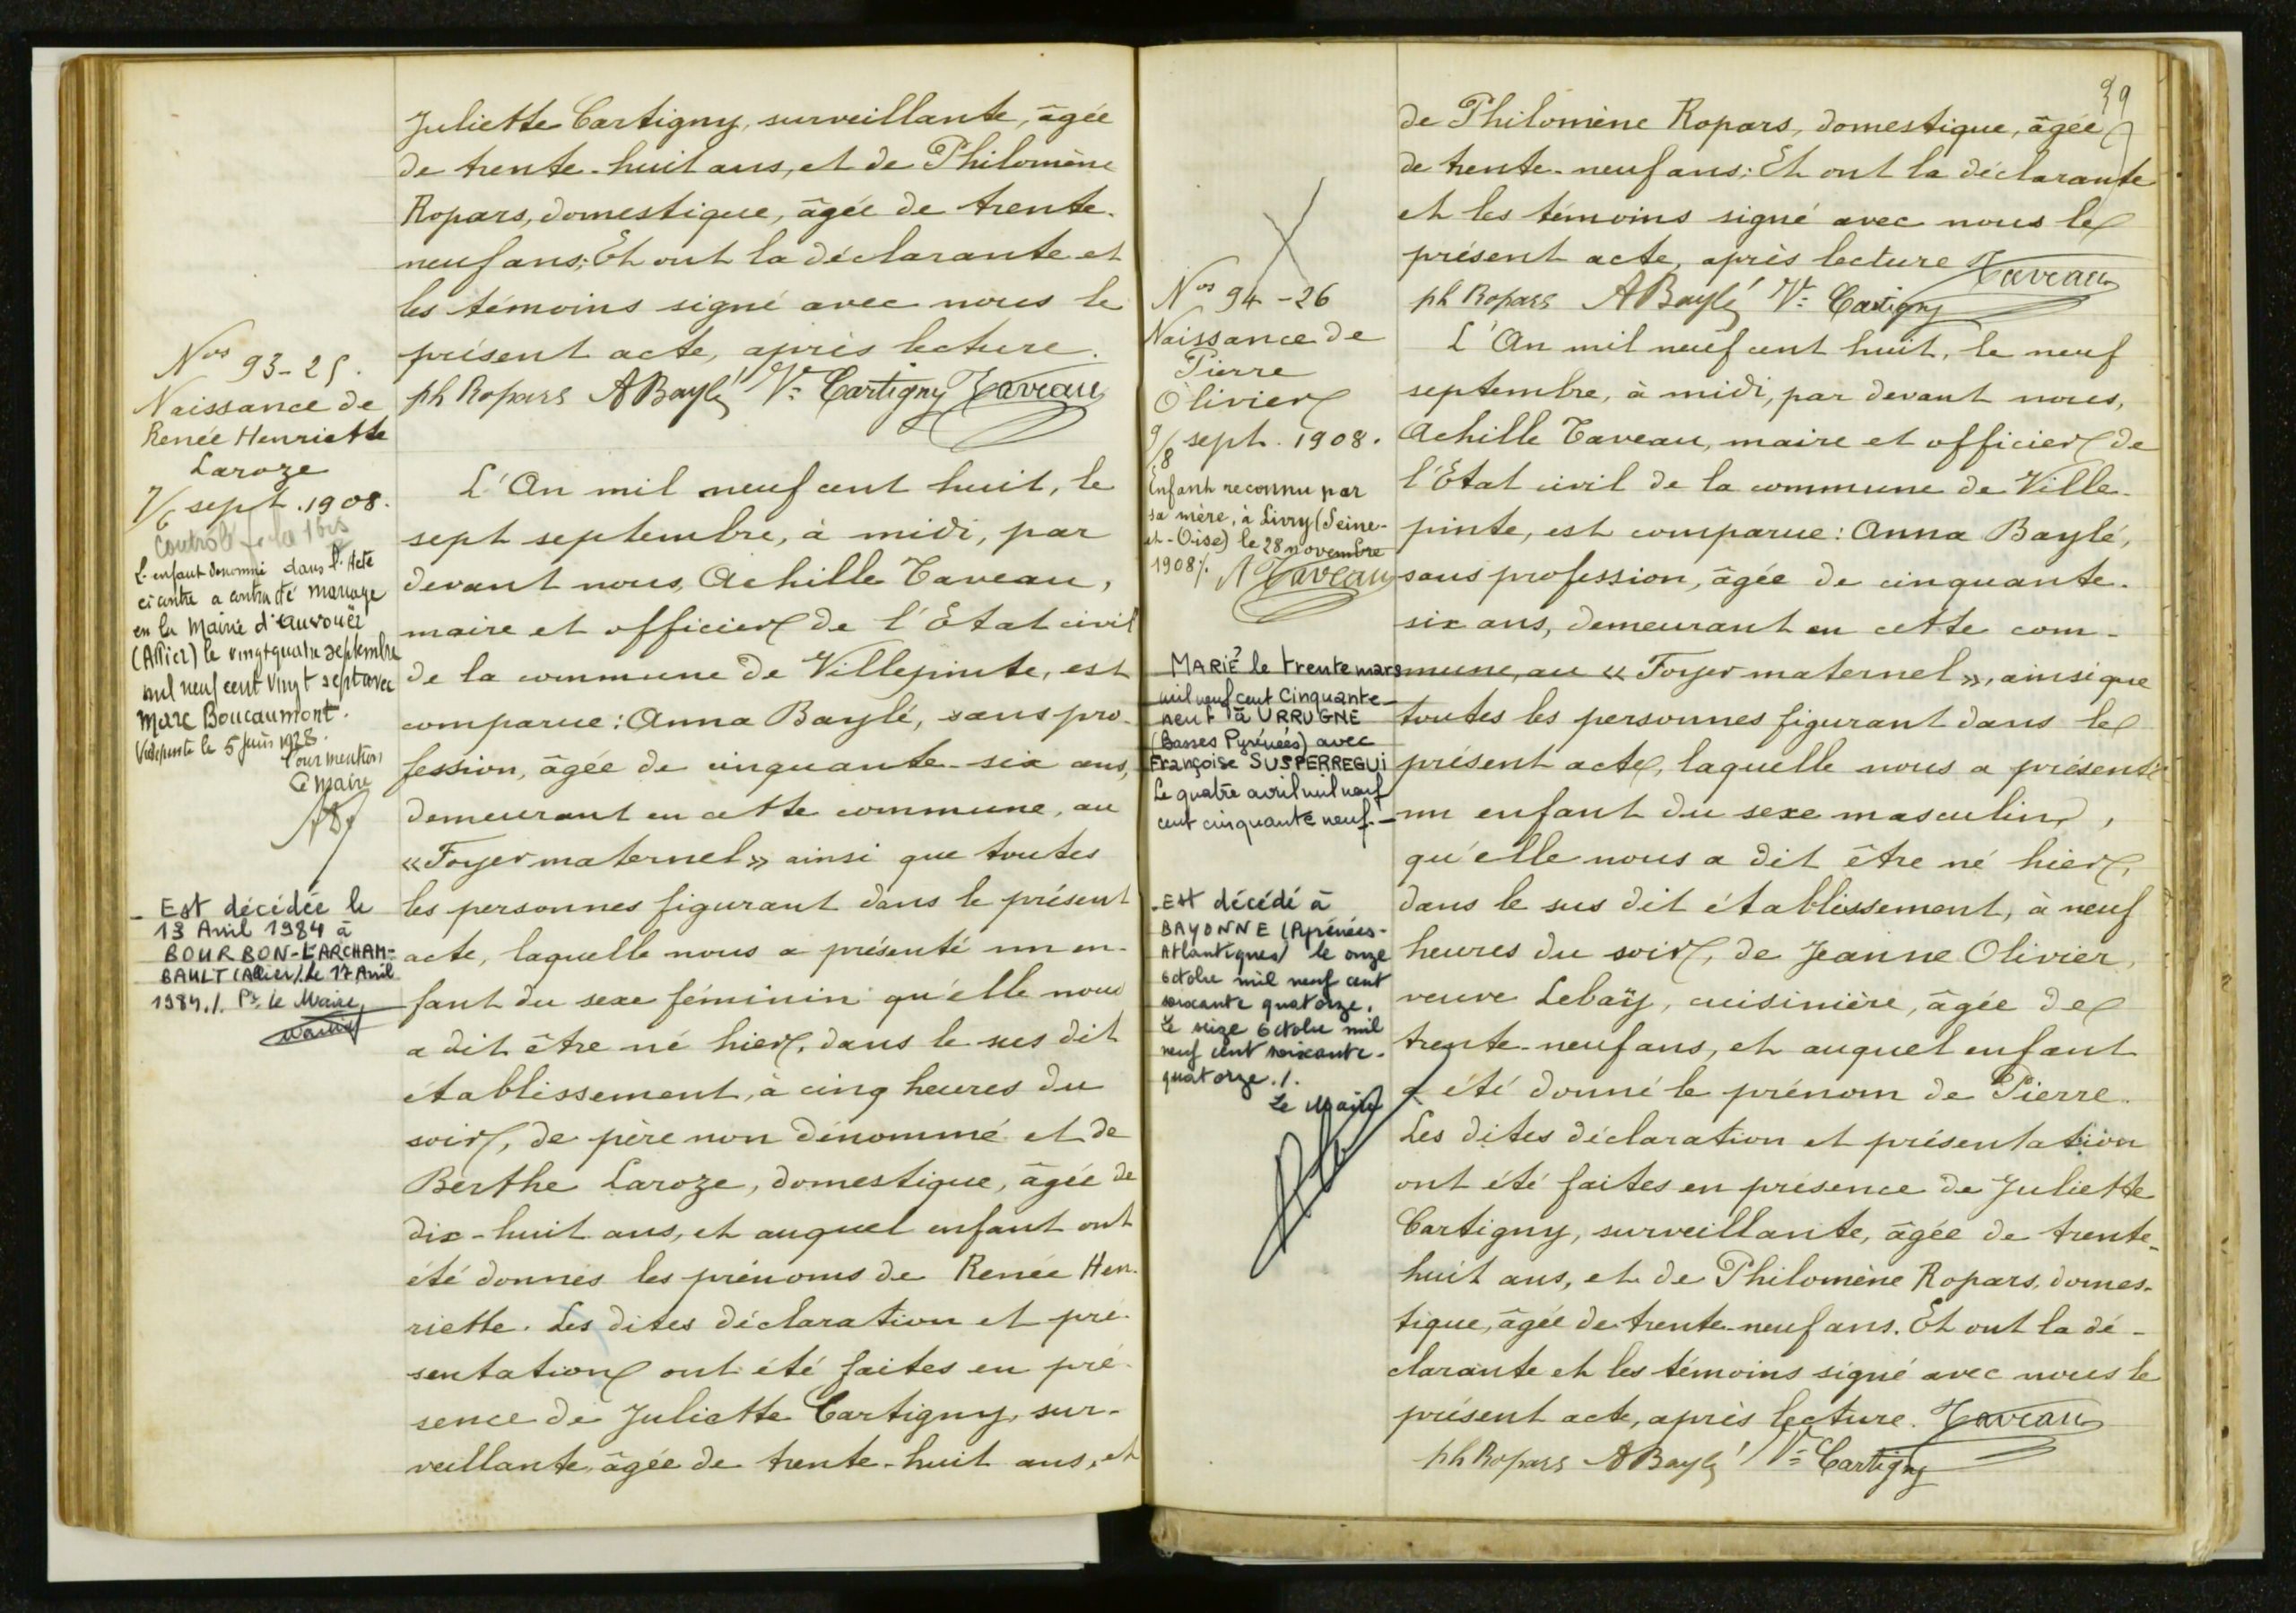 Juliette Cartigny, surveillante, âgée
de trente-huit ans, et de Philomène
Ropars, domestique, âgée de trente-
neuf ans; Et ont la déclarante et
les témoins signé avec nous le
présent acte, après lecture.
ph Ropars ABaylé Ve Cartigny Taveau
Nos 93-25.
Naissance de
Renée Henriette
Laroze
7/6 sept. 1908.
Contrôlé
L'enfant dénommé dans l'Acte
ci contre a contracté mariage
en la Mairie d'Auvouër
(Allier) le vingt quatre septembre
mil neuf cent vingt sept avec
Marc Boucaumont.
Villepinte le 5 juin 1928.
Pour mention
Le Maire
- Est décédée le
13 Avril 1984 à
BOURBON-L'ARCHAM-
BAULT (Allier). Le 17 Avril
1984./. Pr le Maire,
L'An mil neuf cent huit, le
sept septembre, à midi, par
devant nous, Achille Taveau,
maire et officier de l'Etat civil
de la commune de Villepinte, est
comparue: Anna Baylé, sans pro-
fession, âgée de cinquante-six ans,
demeurant en cette commune, au
«Foyer maternel» ainsi que toutes
les personnes figurant dans le présent
acte, laquelle nous a présenté un en-
fant du sexe féminin qu'elle nous
a dit être né hier, dans le sus dit
établissement, à cinq heures du
soir, de père non dénommé et de
Berthe Laroze, domestique, âgée de
dix-huit ans, et auquel enfant ont
été donnés les prénoms de Renée Hen-
riette. Les dites déclaration et pré-
sentation ont été faites en pré-
sence de Juliette Cartigny, sur-
veillante, âgée de trente-huit ans, et
39
de Philomène Ropars, domestique, âgée
de trente-neuf ans; Et ont la déclarante
et les témoins signé avec nous le
présent acte, après lecture Taveau
ph Ropars ABaylé Ve Cartigny
Nos 94-26
Naissance de
Pierre
Olivier
9/8 sept. 1908.
Enfant reconnu par
sa mère, à Livry (Seine-
et-Oise) le 28 novembre
1908./. A Taveau
MARIÉ le trente mars
mil neuf cent Cinquante-
neuf à URRUGNE
(Basses Pyrénées) avec
Françoise SUSPERREGUI
Le quatre avril mil neuf
cent cinquante neuf.-
-Est décédé à
BAYONNE (Pyrénées-
Atlantiques) le onze
octobre mil neuf cent
soixante quatorze.
Le seize octobre mil
neuf cent soixante-
quatorze./.
Le Maire
L'An mil neuf cent huit, le neuf
septembre, à midi, par devant nous,
Achille Taveau, maire et officier de
l'Etat civil de la commune de Ville-
pinte, est comparue: Anna Baylé,
sans profession, âgée de cinquante-
six ans, demeurant en cette com-
mune, au «Foyer maternel», ainsi que
toutes les personnes figurant dans le
présent acte, laquelle nous a présenté
un enfant du sexe masculin,
qu'elle nous a dit être né hier,
dans le sus dit établissement, à neuf
heures du soir, de Jeanne Olivier,
veuve Lebaÿ, cuisinière, âgée de
trente-neuf ans, et auquel enfant
a été donné le prénom de Pierre.
Les dites déclaration et présentation
ont été faites en présence de Juliette
Cartigny, surveillante, âgée de trente-
huit ans, et de Philomène Ropars, domes-
tique, âgée de trente-neuf ans. Et ont la dé-
clarante et les témoins signé avec nous le
présent acte, après lecture. Taveau
ph Ropars ABaylé Ve Cartigny